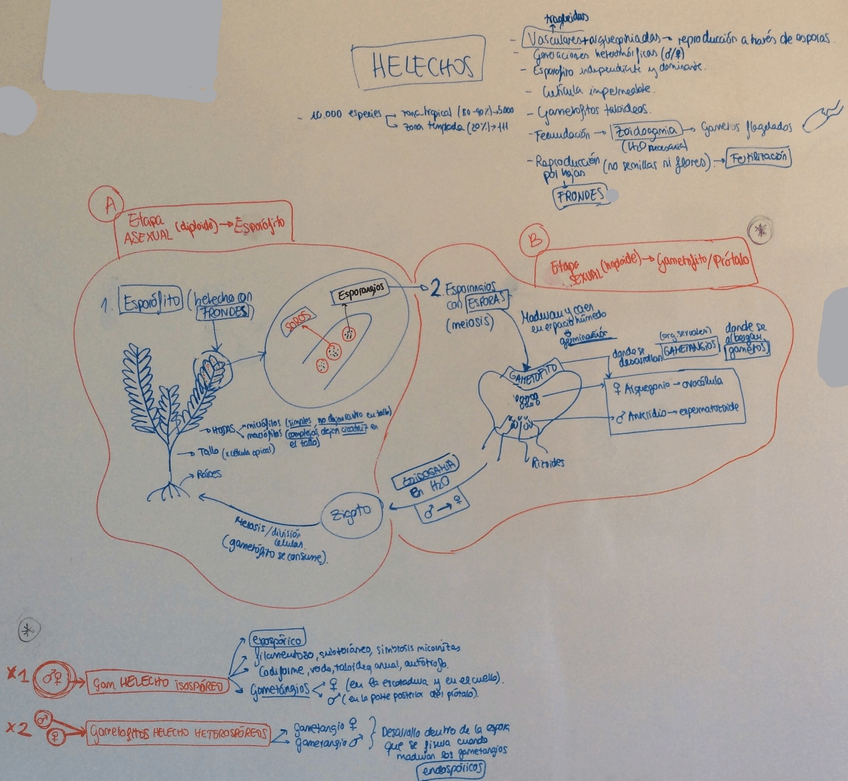 HELECHOS
- 10.000 especies
zona tropical (80-90%)
zona templada (20%)
traqueidas
- Vasculares + arquegoniadas → reproducción a través de esporas.
- Generaciones heteromórficas (♂/♀)
- Esporofito independiente y dominante.
- Cutícula impermeable.
- Gametofitos taloideos.
- Fecundación → Zoidogamia → Gametos flagelados
(H₂O necesaria)
- Reproducción (no semillas ni flores) → Fertilización
por hojas
FRONDES
A
Etapa
ASEXUAL (diploide) → Esporófito
B
Etapa
SEXUAL (haploide) → Gametofito/Prótalo
*
1. Esporófito (helecho con
FRONDES
SOROS
Esporangios
2. Esporangios
con ESPORAS
(meiosis)
Maduran y caen
en espacio húmedo
germinación
GAMETOFITO
donde se
desarrollan
(org. sexuales)
GAMETANGIOS
donde se
albergan
gametos
♀ Arquegonio → ovocélula
♂ Anteridio → espermatozoide
Rizoides
→ HOJAS
micrófilos (simples, no dejan rastro en tallo)
macrófilos (complejos dejan cicatriz en
el tallo)
→ Tallo (x célula apical)
→ Raíces
ZOIDOGAMIA
en H₂O
♂ → ♀
Zigoto
división
celular
(gametofito se consume).
*
x1 ♂♀ Gam HELECHO ISOSPÓREO
exospórico
filamentoso, subterráneo, simbiosis micorrizas
Cordiforme, verde, taloide, anual, autótrofo.
Gametangios
♀ (en la escotadura y en el cuello).
♂ (en la parte posterior del prótalo).
x2 ♂ ♀ Gametofitos HELECHO HETEROSPÓREOS
gametangio ♀
gametangio ♂
Desarrollo dentro de la espora
que se fisura cuando
maduran los gametangios
endospóricos